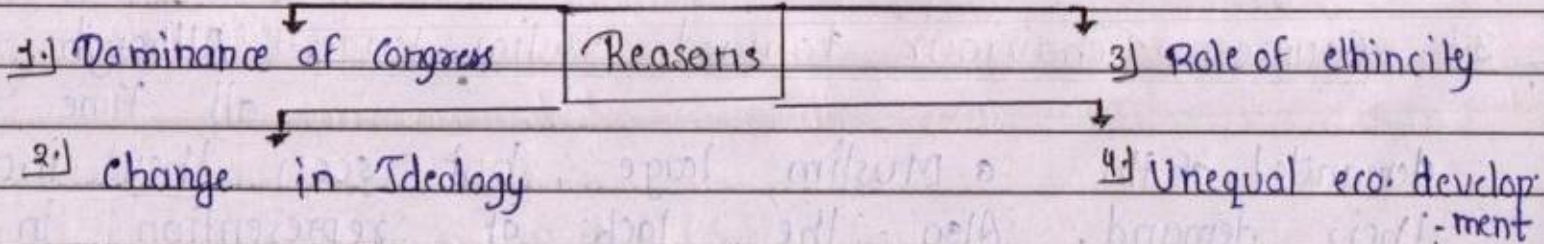 1.) Dominance of Congress
Reasons
3) Role of elhincity
2.) Change in Ideology
4.) Unequal eco. develop
-ment